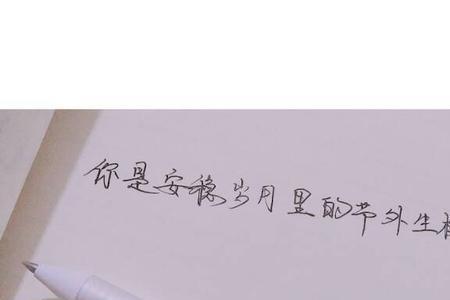 你是安稳岁月里的节外生